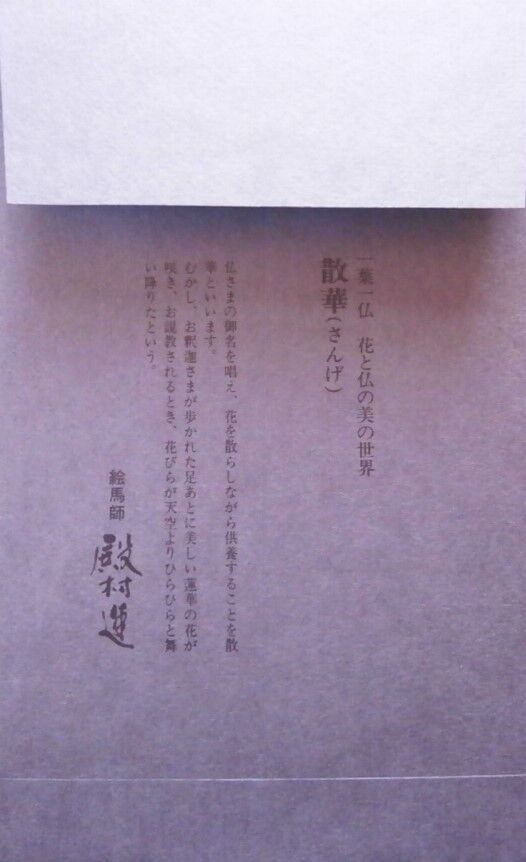 一葉一仏 花と仏の美の世界
散華(さんげ)
仏さまの御名を唱え、花を散らしながら供養することを散
華といいます。
むかし、お釈迦さまが歩かれた足あとに美しい蓮華の花が
咲き、お説教されるとき、花びらが天空よりひらひらと舞
い降りたという。
絵馬師
殿村進